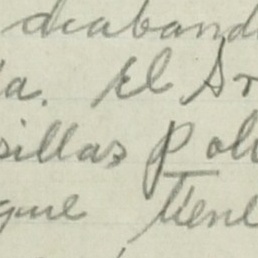 diaband
ia. El Sr
sillas Pol
que tiene